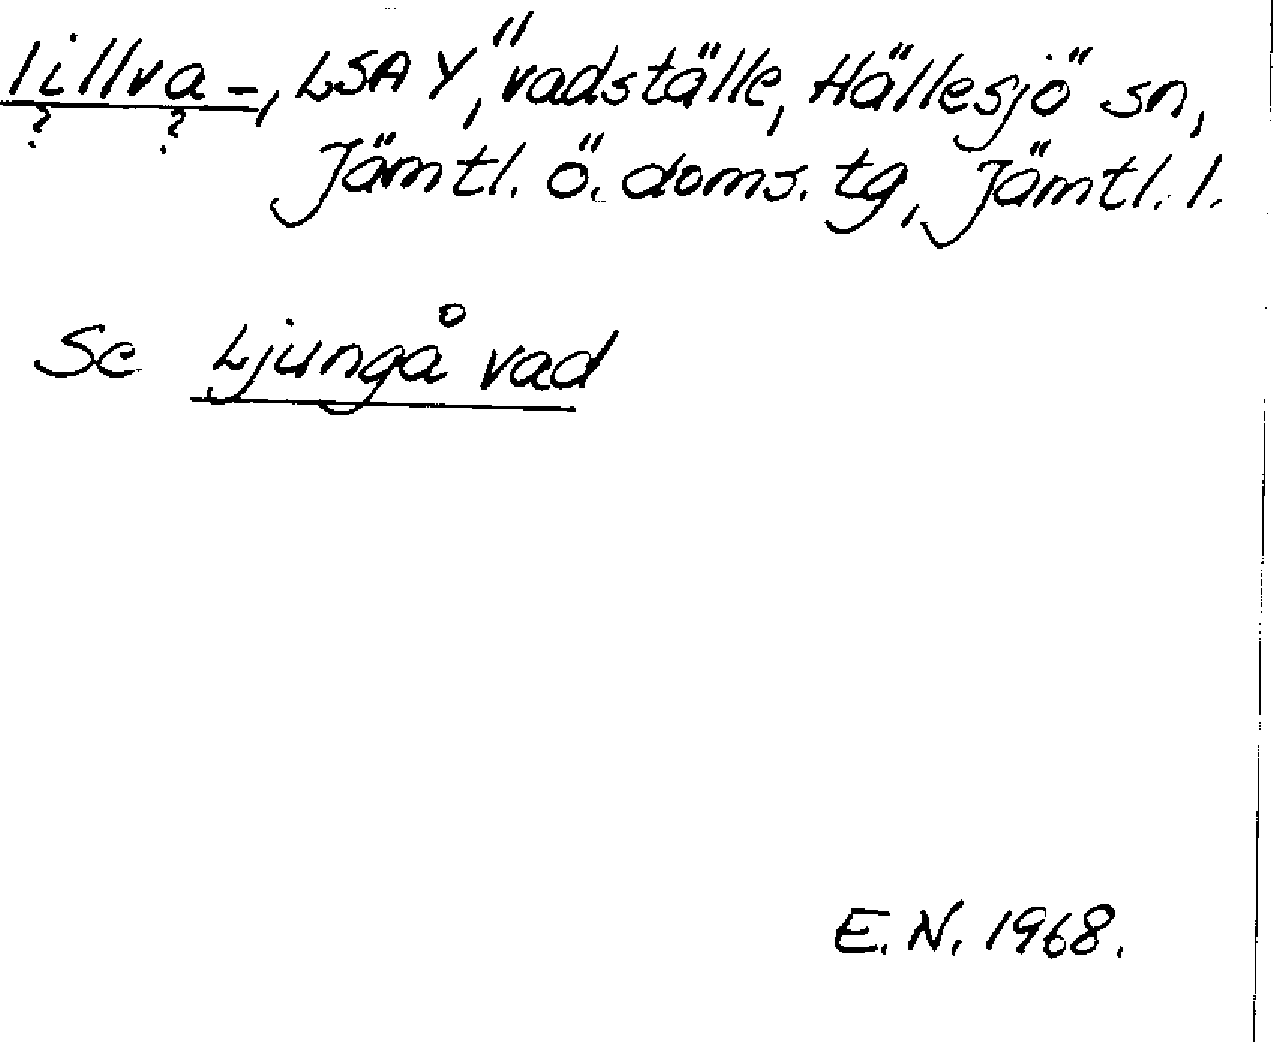 lillva-, LSA Y," vadställe, Hällesjö sn,
? ?
Jämtl. ö. doms. tg, Jämtl. l.
Se Ljungå vad
E. N. 1968.